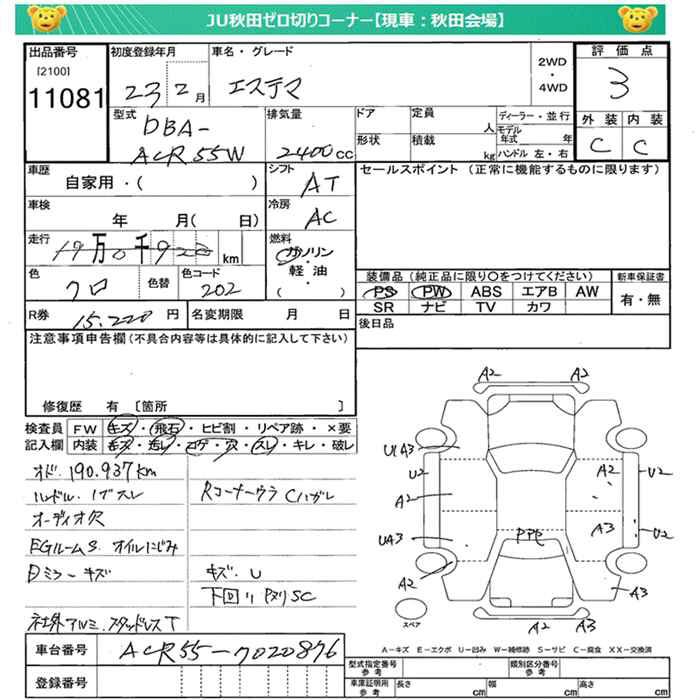 JU秋田ゼロ切りコーナー【現車：秋田会場】
出品番号
[2100]
11081
初度登録年月
23 2月
車名・グレード
エステマ
2WD
・
4WD
評価点
3
外装 内装
C C
型式
DBA-
ACR55W
排気量
2400cc
ドア
形状
定員 人
積載 kg
ディーラー・並行
モデル年式 年
ハンドル 左・右
車歴
自家用・( )
シフト
AT
セールスポイント (正常に機能するものに限ります)
車検
年 月( 日)
冷房
AC
走行
万 千 km
燃料
ガソリン
軽油・
( )
色
クロ
色替
色コード
202
装備品 (純正品に限り○をつけてください)
PS PW ABS エアB AW
SR ナビ TV カワ
新車保証書
有・無
R券 15,220円
名変期限 月 日
後日品
注意事項申告欄(不具合内容等は具体的に記入して下さい)
修復歴 有 〔箇所 〕
検査員
記入欄
FW キズ・飛石・ヒビ割・リペア跡・×要
内装 キズ・汚レ・コゲ・穴・スレ・キレ・破レ
オド.190,937km
ハンドル.ノブスレ
Rコーナーウラ Cハガレ
オーディオ欠
EGルームS オイルにじみ
日ミラーキズ
キズ.U
下回り Pヌリ SC
社外アルミ.スタッドレスT
A2 A2
U1A3
U2
A2
UA3
A2
A2
U2
A3
U2
A3
PPP
A2 A2
スペア
A-キズ E-エクボ U-凹み W-補修跡 S-サビ C-腐食 XX-交換済
車台番号
ACR55-7020876
登録番号
型式指定番号
参考
類別区分番号
参考
車庫証明用
参考
長さ cm
幅 cm
高さ cm